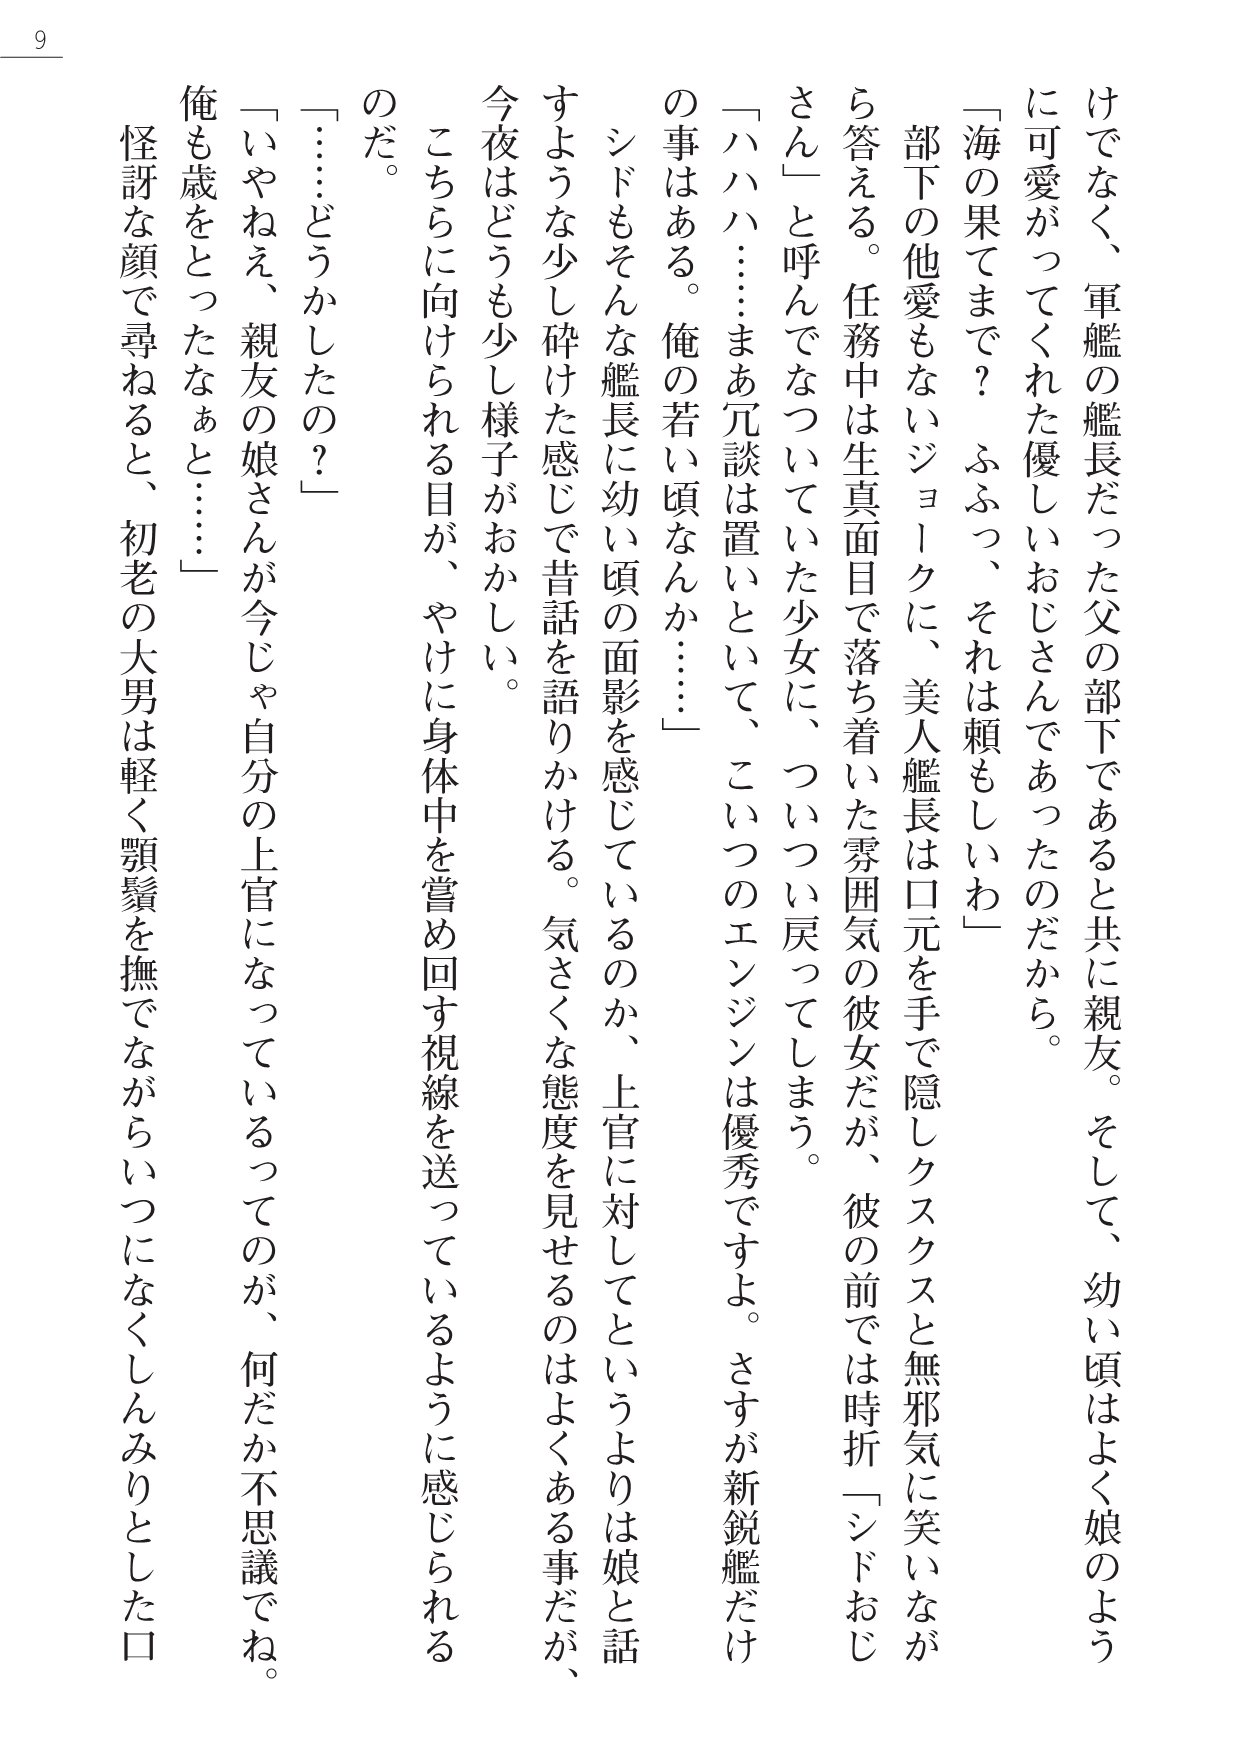 9
けでなく、軍艦の艦長だった父の部下であると共に親友。そして、幼い頃はよく娘のよう
に可愛がってくれた優しいおじさんであったのだから。
「海の果てまで？　ふふっ、それは頼もしいわ」
　部下の他愛もないジョークに、美人艦長は口元を手で隠しクスクスと無邪気に笑いなが
ら答える。任務中は生真面目で落ち着いた雰囲気の彼女だが、彼の前では時折「シドおじ
さん」と呼んでなついていた少女に、ついつい戻ってしまう。
「ハハハ……まあ冗談は置いといて、こいつのエンジンは優秀ですよ。さすが新鋭艦だけ
の事はある。俺の若い頃なんか……」
　シドもそんな艦長に幼い頃の面影を感じているのか、上官に対してというよりは娘と話
すような少し砕けた感じで昔話を語りかける。気さくな態度を見せるのはよくある事だが、
今夜はどうも少し様子がおかしい。
　こちらに向けられる目が、やけに身体中を嘗め回す視線を送っているように感じられる
のだ。
「……どうかしたの？」
「いやねえ、親友の娘さんが今じゃ自分の上官になっているってのが、何だか不思議でね。
俺も歳をとったなぁと……」
　怪訝な顔で尋ねると、初老の大男は軽く顎鬚を撫でながらいつになくしんみりとした口